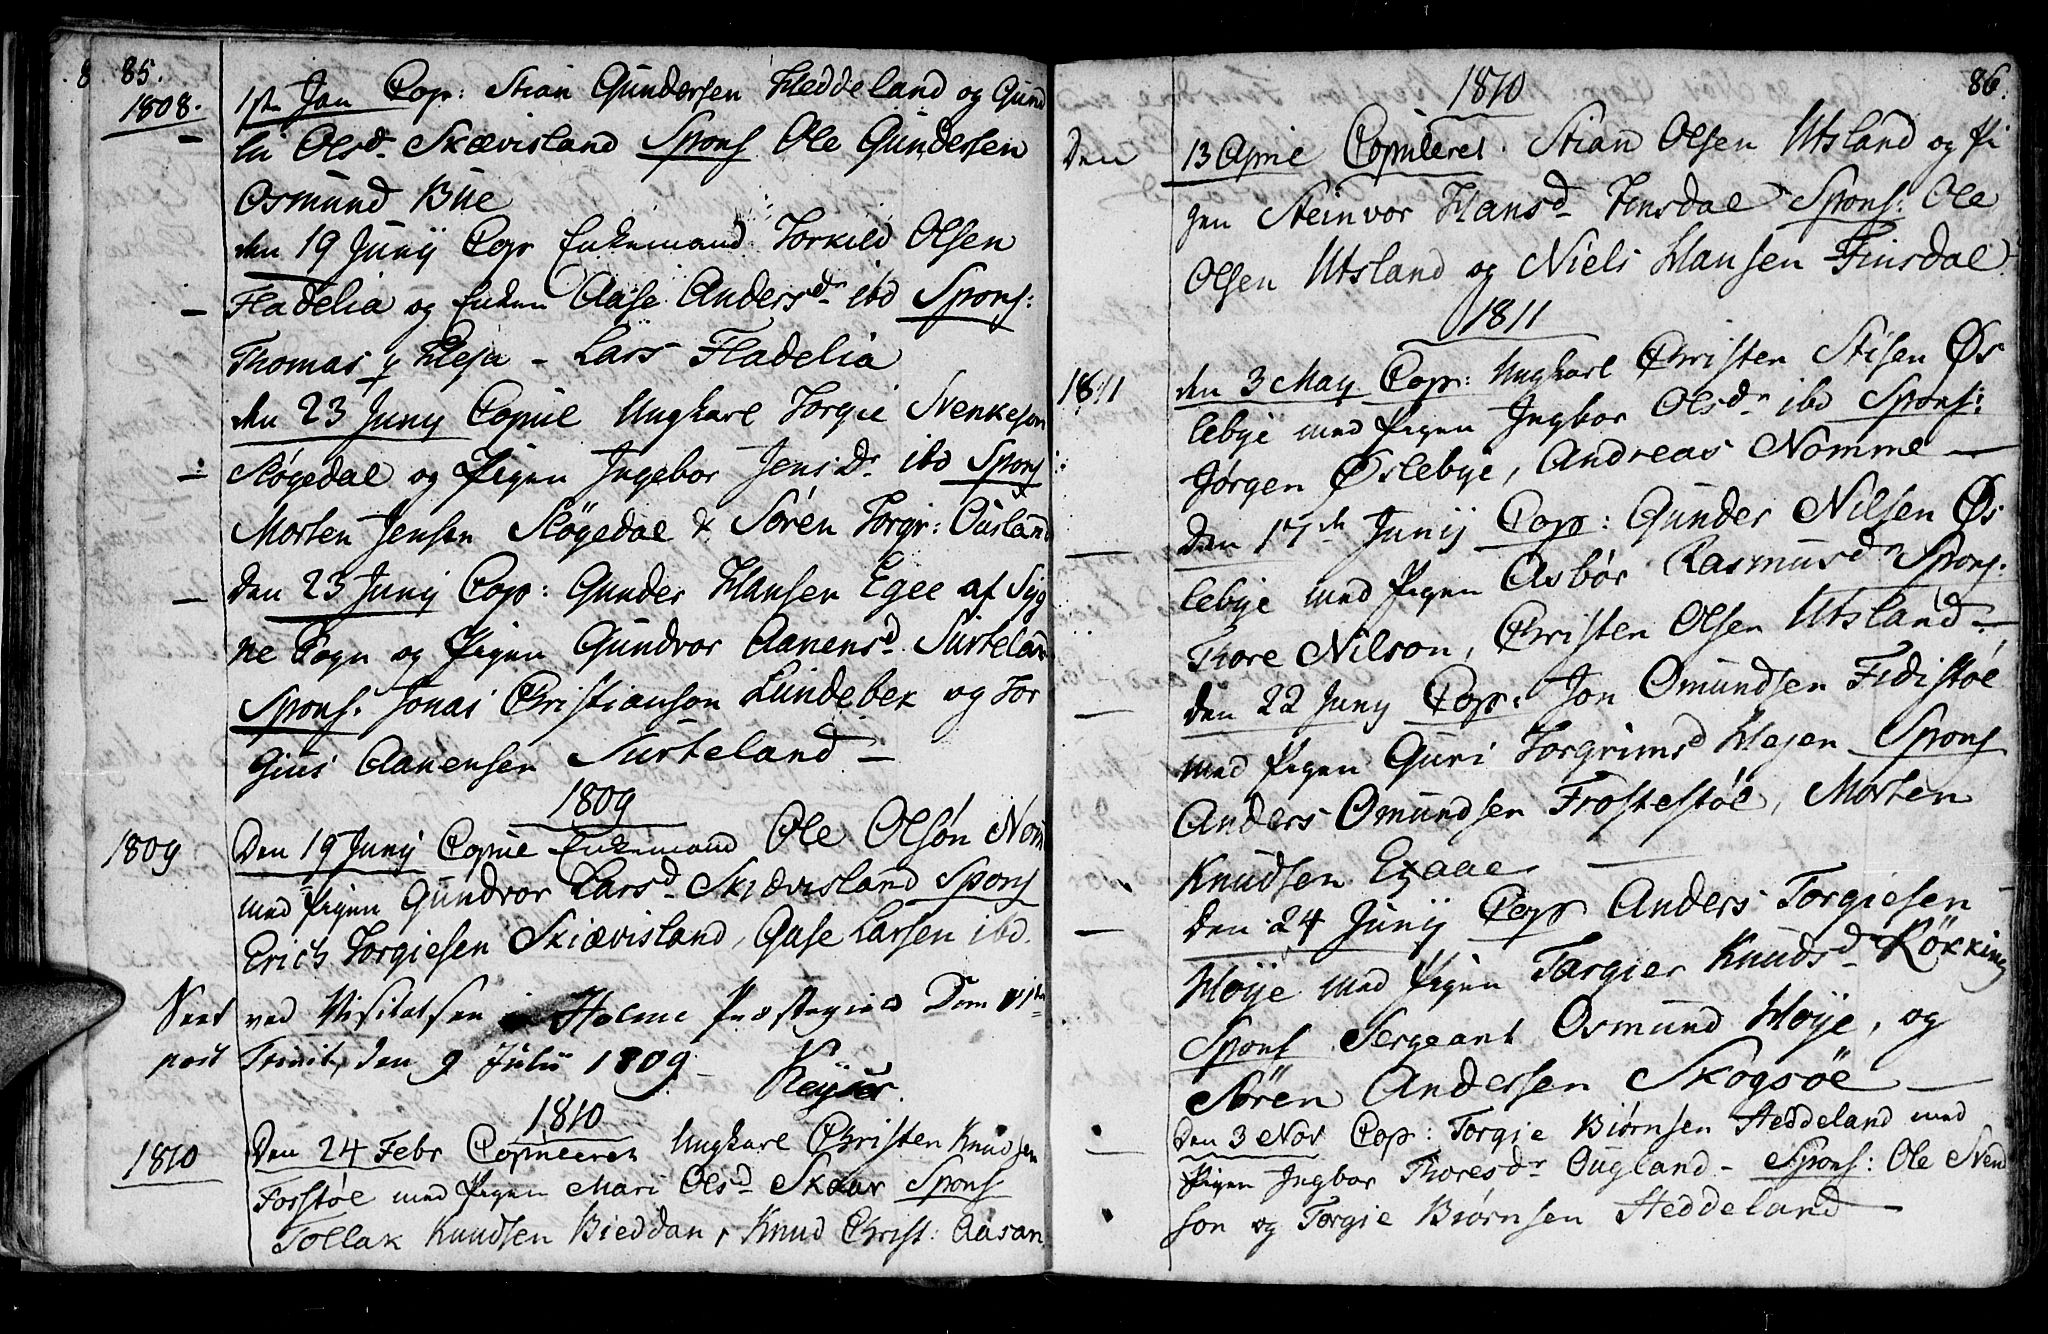 85.
1808.
1ste Jan Cop: Stian Gundersen Heddeland og Gund
li Olsd. Skævisland Spons Ole Gundersen
Osmund Bue
den 19 Junij Cop Enkemand Torkild Olsen
Fladelia og Enken Aase Andersdr ibd Spons:
Thomas Hesja - Lars Fladelia
den 23 Junij Copul Ungkarl Torgie Svenkeson
Skøgedal og Pigen Ingebor Jensdr ibd Spons:
Morten Jensen Skøgedal & Søren Torgr: Ousland
den 23 Junij Cop: Gunder Hansen Egee af Syg
ne Sogn og Pigen Gundvor Aanensd. Surteland
Spons. Jonas Christianson Lundebek og Tor
Gius Aanensen Surteland —
1809
1809
Den 19 Junij Copul Enkemand Ole Olsøn Nom
med Pigen Gundvor Larsd. Skiævisland Spons
Erich Torgiesen Skiævisland, Aase Larsen ibd.
Seet ved Visitatsen i Holme Præstegield Dom VI
post Trinit, den 9 Julii 1809 — Keyser.
1810
1810
Den 24 Febr Copuleeret Ungkarl Christen Knudsen
Forstøl med Pigen Mari Olsd Skaar Spons
Tollak Knudsen Bieddan, Knud Christ: Aasan
86.
1810
Den 13 April Copuleret. Stian Olsen Utsland og Pi
gen Steinvor Hansd. Finsdal Spons: Ole
Olsen Utsland og Niels Hansen Finsdal
1811
1811
den 3 May Cop: Ungkarl Christen Stisen Øs
lebye med Pigen Ingbor Olsdr ibd Spons:
Jørgen Øslebye, Andreas Nomme —
Den 17de Junij Cop: Gunder Nilsen Øs
lebye med Pigen Asbør Rasmusdr Spons:
Tore Nilson, Christen Olsen Utsland —
den 22 Juny Cop: Jon Omundsen Fidistøl
med Pigen Guri Torgrimsd Hesen Spons
Anders Omundsen Frøstestøl, Morten
Knudsen Egaae
Den 24 Junij Cop Anders Torgiesen
Høye med Pigen Targier Knudsd. Røkking
Spons Sergeant Osmund Høye, og
Søren Andersen Skogsøe —
Den 3 Nov Cop: Torgie Biørnsen Heddeland med
Pigen Ingbor Thoresdr Ougland - Spons: Ole Svend
son og Torgie Biørnsen Heddeland —